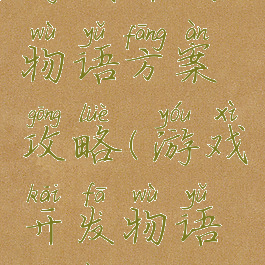 wù yǔ fāng àn
物语方案
gōng lüè yóu xì
攻略(游戏
kāi fā wù yǔ
开发物语